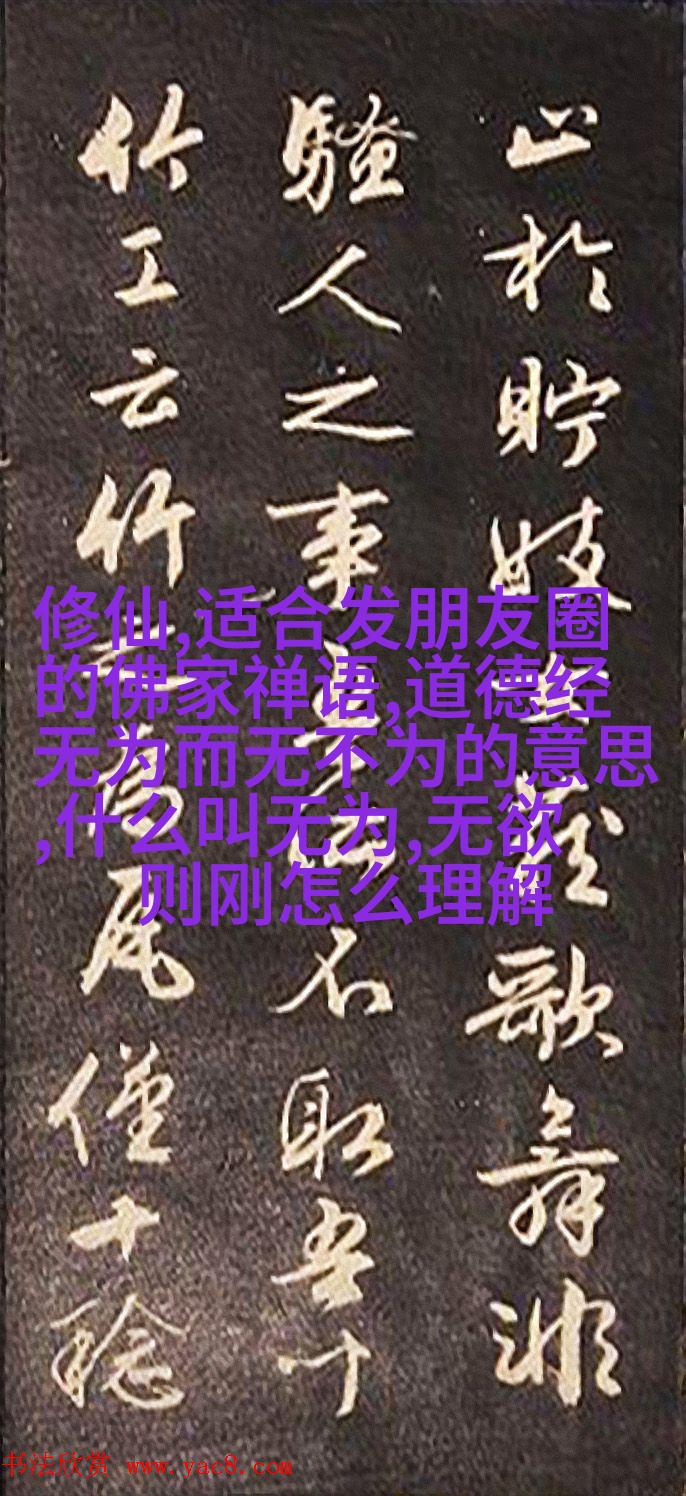 止於貯妓藏歌舞非
騷人之事不取吾聞
竹工云竹瓦僅十稔
修仙,适合发朋友圈
的佛家禅语,道德经
无为而无不为的意思
,什么叫无为,无欲
则刚怎么理解
书法欣赏 www.yac8.com